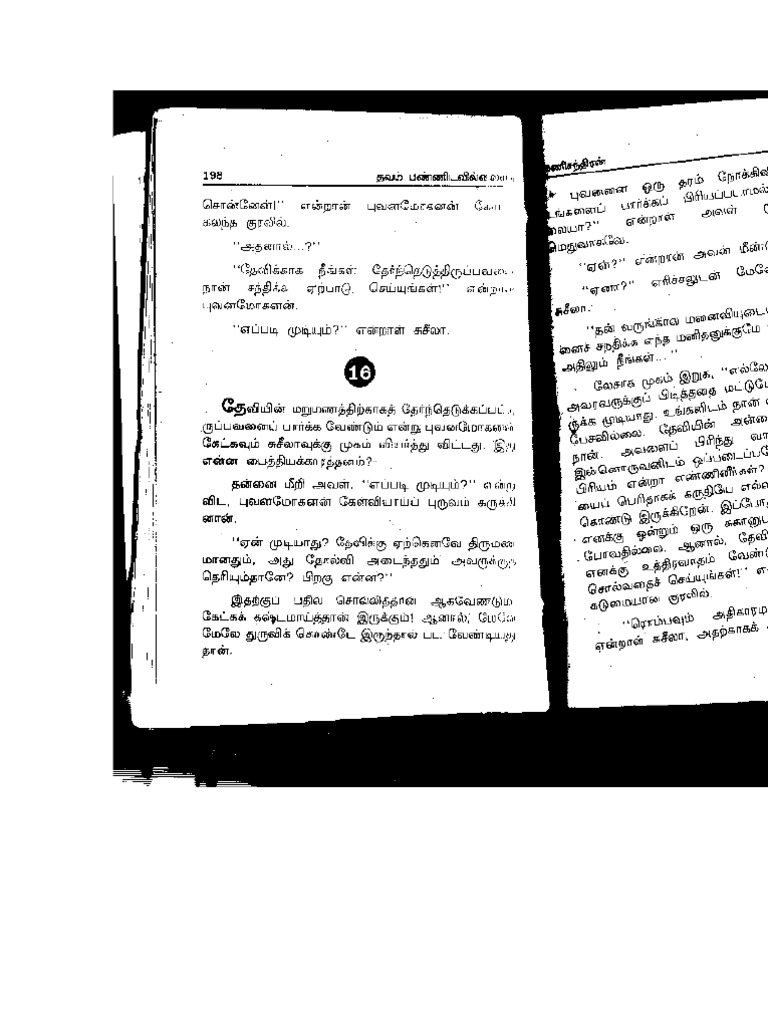 198 தவம் பண்ணிடவில்லை
சொன்னேன்!" என்றான் புவனமோகனன்
கலந்த குரலில்.
"அதனால்...?"
"தேவிக்காக நீங்கள் தேர்ந்தெடுத்திருப்பவரை
நான் சந்திக்க ஏற்பாடு செய்யுங்கள்!" என்றான்
புவனமோகனன்.
"எப்படி முடியும்?" என்றாள் சுசீலா.
16
தேவியின் மறுமணத்திற்காகத் தேர்ந்தெடுக்கப்பட்டி
ருப்பவனைப் பார்க்க வேண்டும் என்று புவனமோகனன்
கேட்கவும் சுசீலாவுக்கு முகம் வியர்த்து விட்டது. இது
என்ன பைத்தியக்காரத்தனம்?
தன்னை மீறி அவள், "எப்படி முடியும்?" என்று
விட, புவனமோகனன் கேள்வியாய்ப் புருவம் சுருக்கி
னான்.
"ஏன் முடியாது? தேவிக்கு ஏற்கெனவே திருமண
மானதும், அது தோல்வி அடைந்ததும் அவருக்குத்
தெரியும்தானே? பிறகு என்ன?"
இதற்குப் பதில் சொல்லித்தான் ஆகவேண்டும்
கேட்கக் கஷ்டமாய்த்தான் இருக்கும்! ஆனால், மேலே
மேலே துருவிக் கொண்டே இருந்தால் பட வேண்டியது
தான்.
மணிசந்திரன்
புவனனை ஒரு தரம் நோக்கி
உங்களைப் பார்க்கப் பிரியப்படாமல்
லையா?" என்றாள் அவள்
மெதுவாகவே.
"ஏன்?" என்றான் அவன் மீண்
"ஏனா?" எரிச்சலுடன் மேலே
சுசீலா.
"தன் வருங்கால மனைவியுடைய
னைச் சந்திக்க எந்த மனிதனுக்குமே
அதிலும் நீங்கள்..."
லேசாக முகம் இறுக, "எல்லே
அவரவருக்குப் பிடித்ததை மட்டுமே
ருக்க முடியாது. உங்களிடம் நான்
பேசவில்லை. தேவியின் அன்பை
நான். அவளைப் பிரிந்து வா
இன்னொருவனிடம் ஒப்படைப்பே
பிரியம் என்றா எண்ணினீர்கள்?
யைப் பெரிதாகக் கருதியே எல்
கொண்டு இருக்கிறேன். இப்போ
எனக்கு ஒன்றும் ஒரு சுகானு
போவதில்லை, ஆனால், தேவி
எனக்கு உத்திரவாதம் வேண்
சொல்வதைச் செய்யுங்கள்!"
கடுமையான குரலில்.
"ரொம்பவும் அதிகாரமு
என்றாள் சுசீலா, அதற்காகக்